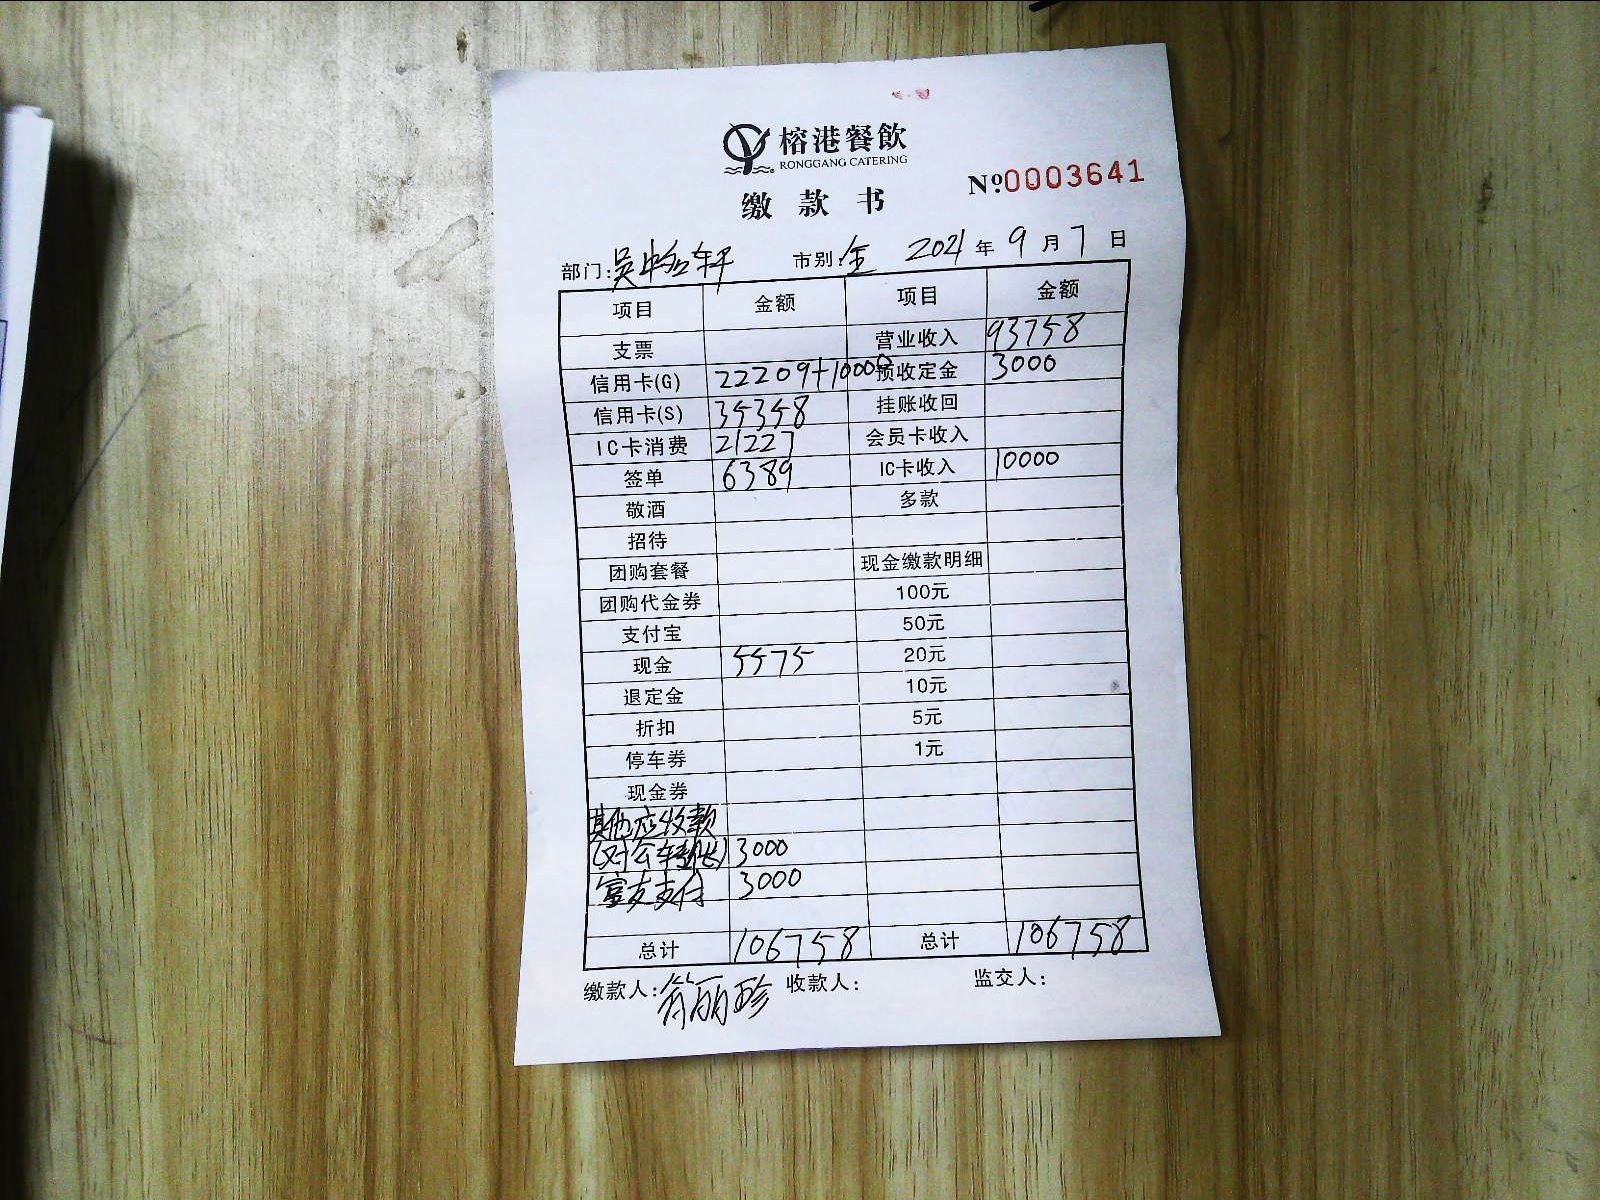 榕港餐飲
RONGGANG CATERING
缴款书
Nº0003641
部门: 吴 轩 市别: 全 2021年9月7日
项目 金额 项目 金额
支票 营业收入 93758
信用卡(G) 22209+10000 预收定金 3000
信用卡(S) 35358 挂账收回
IC卡消费 21227 会员卡收入
签单 6389 IC卡收入 10000
敬酒 多款
招待
团购套餐 现金缴款明细
团购代金券 100元
支付宝 50元
现金 5575 20元
退定金 10元
折扣 5元
停车券 1元
现金券
其他应收款
(对公转账) 3000
富友支付 3000
总计 106758 总计 106758
缴款人: 翁丽珍 收款人: 监交人: